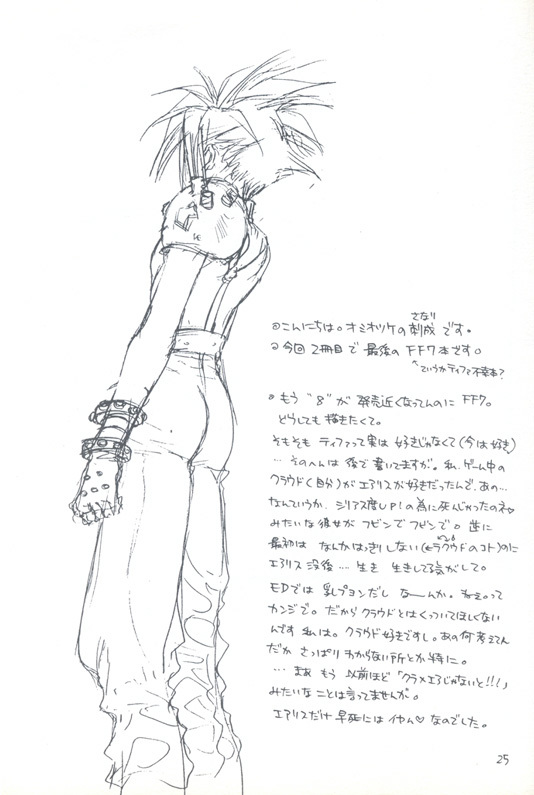 ◎こんにちは。オミオツケの刺成です。
さなり
◎今回2冊目で最後のFF7本です。
←ていうかティファ不幸本?
◎もう“8”が発売近くなってんのにFF7。
どうしても描きたくて。
そもそもティファって実は好きじゃなくて(今は好き)
…そのへんは後で書いてますが。私、ゲーム中の
クラウド(自分)がエアリスが好きだったんで、あの…
なんていうか、シリアス度UP!の為に死んじゃったのネ
みたいな彼女がフビンでフビンで。逆に
最初はなんかはっきりしない(←クラウドのコト)のに
エアリス没後…生き生きしてる気がして。
EDでは乳プヨンだしなーんか。ねぇ。って
カンジで。だからクラウドとはくっついてほしくない
んです私は。クラウド好きですし。あの何考えてん
だかさっぱりわからない所とか特に。
…まぁもう以前ほど「クラ×エアじゃないと!!」
みたいなことは言ってませんが。
エアリスだけ早死にはイヤん♡なのでした。
25